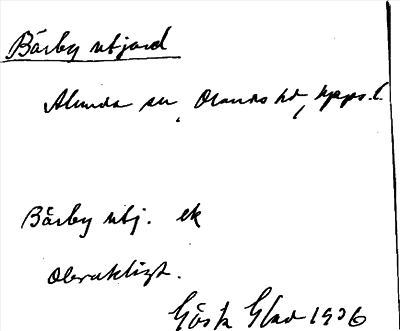 Bärby utjord
Alunda sn, Olands hd, Upps. l.
Bärby utj. ek
Obrukligt.
Gösta Glad 1936